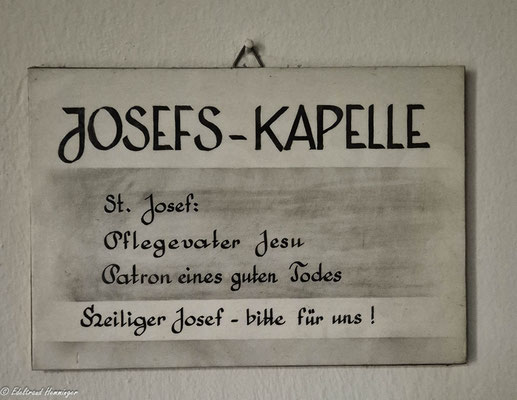 JOSEFS-KAPELLE
St. Josef:
Pflegevater Jesu
Patron eines guten Todes
Heiliger Josef - bitte für uns!
© Edeltraud Hemminger